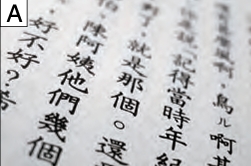 A
記得當時年紀
對了，就是那個。還
陳阿姨他們幾個
好不好？